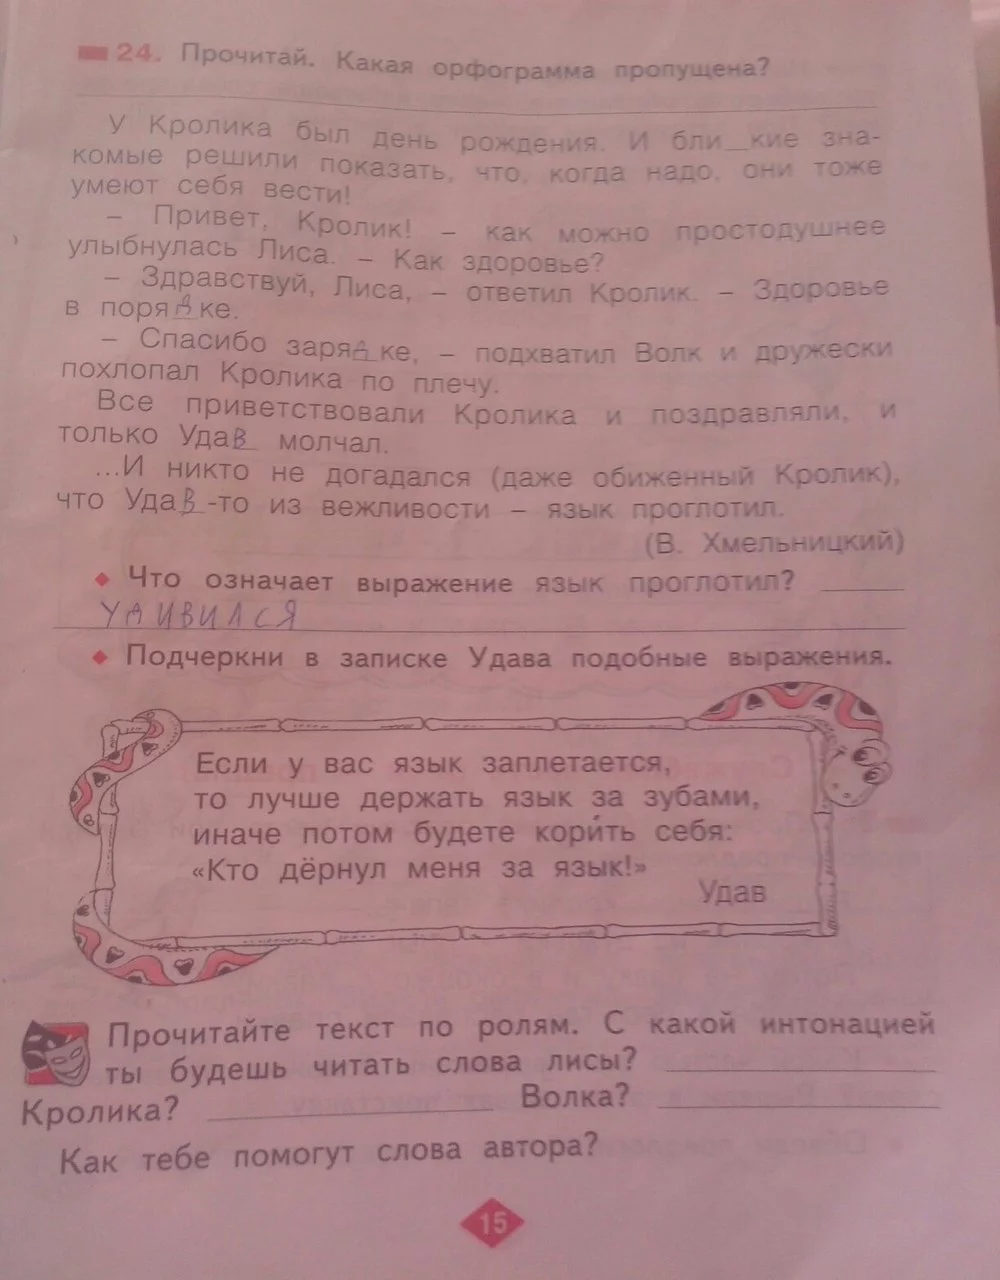 24. Прочитай. Какая орфограмма пропущена?
У Кролика был день рождения. И бли_кие зна-
комые решили показать, что, когда надо, они тоже
умеют себя вести!
– Привет, Кролик! – как можно простодушнее
улыбнулась Лиса. – Как здоровье?
– Здравствуй, Лиса, – ответил Кролик. – Здоровье
в порядке.
– Спасибо зарядке, – подхватил Волк и дружески
похлопал Кролика по плечу.
Все приветствовали Кролика и поздравляли, и
только Удав молчал.
...И никто не догадался (даже обиженный Кролик),
что Удав-то из вежливости – язык проглотил.
(В. Хмельницкий)
Что означает выражение язык проглотил?
УДИВИЛСЯ
Подчеркни в записке Удава подобные выражения.
Если у вас язык заплетается,
то лучше держать язык за зубами,
иначе потом будете кори́ть себя:
«Кто дёрнул меня за язык!»
Удав
Прочитайте текст по ролям. С какой интонацией
ты будешь читать слова лисы?
Кролика? Волка?
Как тебе помогут слова автора?
15